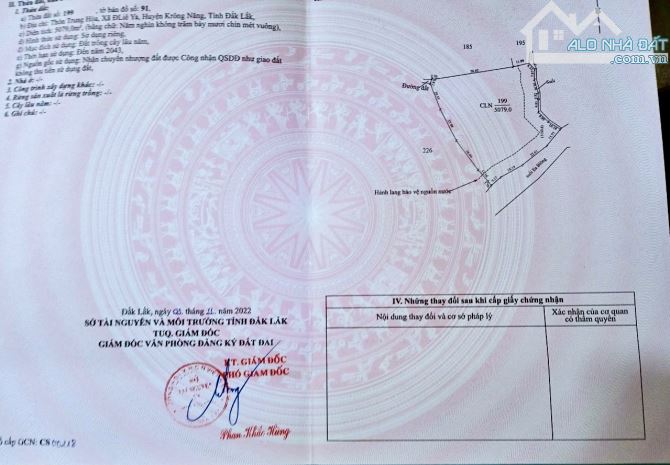 II. Thửa đất,
1. Thửa đất:
a) Thửa đất số: 199 , tờ bản đồ số: 91.
b) Địa chỉ: Thôn Trung Hòa, Xã ĐLiê Ya, Huyện Krông Năng, Tỉnh Đắk Lắk.
c) Diện tích: 5079,0m², (bằng chữ: Năm nghìn không trăm bảy mươi chín mét vuông),
d) Hình thức sử dụng: Sử dụng riêng,
đ) Mục đích sử dụng: Đất trồng cây lâu năm,
e) Thời hạn sử dụng: Đến năm 2043,
g) Nguồn gốc sử dụng: Nhận chuyển nhượng đất được Công nhận QSDĐ như giao đất
không thu tiền sử dụng đất.
2. Nhà ở: -/-
3. Công trình xây dựng khác: -/-
4. Rừng sản xuất là rừng trồng: -/-
5. Cây lâu năm: -/-
6. Ghi chú: -/-
ALO NHÀ ĐẤT
.com.vn
185
195
Đường đất
CLN 199
5079,0
226
Suối
Hành lang bảo vệ nguồn nước
Đắk Lắk, ngày 03 tháng 11 năm 2022
SỞ TÀI NGUYÊN VÀ MÔI TRƯỜNG TỈNH ĐẮK LẮK
TUQ. GIÁM ĐỐC
GIÁM ĐỐC VĂN PHÒNG ĐĂNG KÝ ĐẤT ĐAI
KT. GIÁM ĐỐC
PHÓ GIÁM ĐỐC
Phan Khắc Hùng
IV. Những thay đổi sau khi cấp giấy chứng nhận
Nội dung thay đổi và cơ sở pháp lý
Xác nhận của cơ quan
có thẩm quyền
cấp GCN: CS